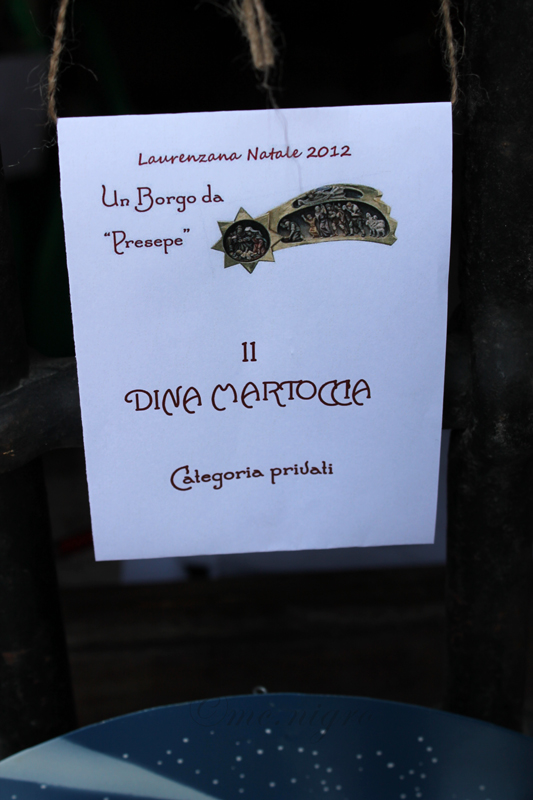 Laurenzana Natale 2012
Un Borgo da
“Presepe”
11
DINA MARTOCCIA
Categoria privati